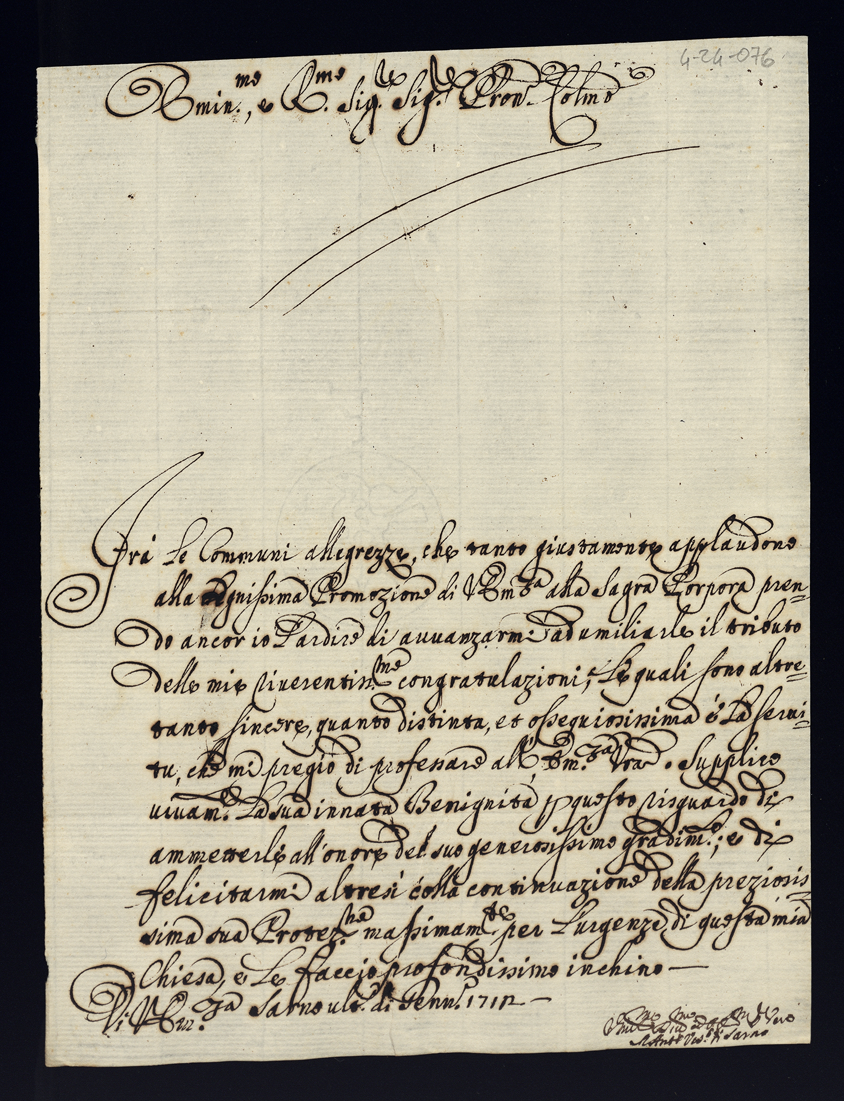 4-24-076
Emin.mo, e R.mo Sig.re Sig.re Pron.e Colmo
Frà le Communi allegrezze, che tanto giustamente applaudono
alla degnissima Promozione di V. Em.za alla Sagra Porpora pren-
do ancor io l'ardire di avvanzarmi ad umiliarle il tributo
delle mie riverentis.me congratulazioni; Le quali sono altre-
tanto sincere, quanto distinta, et ossequiosissima è la servi-
tù, che mi pregio di professare all'Em.za Vra. Supplico
vivam.te la sua innata Benignità p questo risguardo di
ammetterle all'onore del suo generosissimo gradim.to; e di
felicitarmi altresì colla continuazione della preziosis-
sima sua Protez.ne massimam.te per l'urgenze di questa mia
Chiesa, e Le faccio profondissimo inchino —
Di V. Em.za Sarno ult.o di Genn.o 1712 —
Vesc.o di Sarno